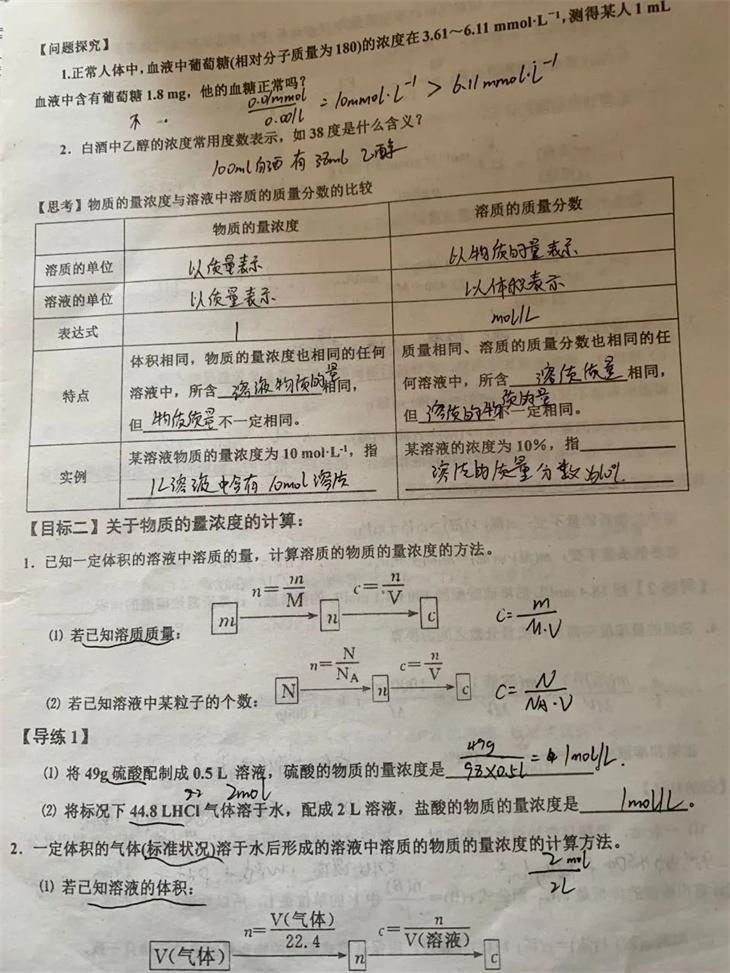 【问题探究】
1.正常人体中,血液中葡萄糖(相对分子质量为180)的浓度在3.61～6.11 mmol·L⁻¹,测得某人1 mL
血液中含有葡萄糖 1.8 mg，他的血糖正常吗?
不. 0.01mmol/0.001L = 10mmol·L⁻¹ > 6.11 mmol·L⁻¹
2．白酒中乙醇的浓度常用度数表示，如38度是什么含义?
100ml白酒有38ml乙醇
【思考】物质的量浓度与溶液中溶质的质量分数的比较
物质的量浓度 溶质的质量分数
溶质的单位 以质量表示 以物质的量表示
溶液的单位 以质量表示 以体积表示
表达式 1 mol/L
特点
体积相同，物质的量浓度也相同的任何
溶液中，所含 溶液物质的量 相同，
但 物质质量 不一定相同。
质量相同、溶质的质量分数也相同的任
何溶液中，所含 溶质质量 相同，
但 溶质的物质的量 不一定相同。
实例
某溶液物质的量浓度为 10 mol·L⁻¹，指
1L溶液中含有10mol溶质
某溶液的浓度为 10%，指
溶质的质量分数为10%
【目标二】关于物质的量浓度的计算：
1．已知一定体积的溶液中溶质的量，计算溶质的物质的量浓度的方法。
n=m/M c=n/V
⑴ 若已知溶质质量： m n c c=m/M·V
n=N/NA c=n/V
⑵ 若已知溶液中某粒子的个数： N n c c=N/NA·V
【导练1】
⑴ 将 49g 硫酸配制成 0.5 L 溶液，硫酸的物质的量浓度是 49g/98×0.5L = 1mol/L.
2mol
⑵ 将标况下 44.8 LHCl 气体溶于水，配成 2 L 溶液，盐酸的物质的量浓度是 1mol/L 。
2．一定体积的气体(标准状况)溶于水后形成的溶液中溶质的物质的量浓度的计算方法。
2mol/2L
⑴ 若已知溶液的体积：
n=V(气体)/22.4 c=n/V(溶液)
V(气体) n c